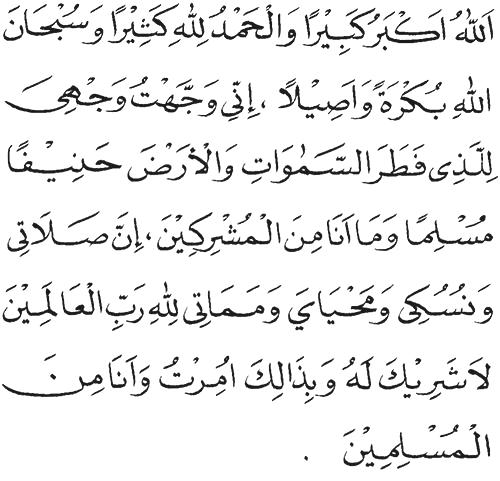 اَللّٰهُ اَكْبَرُ كَبِيْرًا وَالْحَمْدُ لِلّٰهِ كَثِيْرًا وَسُبْحَانَ
اللّٰهِ بُكْرَةً وَاَصِيْلًا ، اِنِّي وَجَّهْتُ وَجْهِيَ
لِلَّذِى فَطَرَ السَّمٰوَاتِ وَالْاَرْضَ حَنِيْفًا
مُسْلِمًا وَمَا اَنَا مِنَ الْمُشْرِكِيْنَ ، اِنَّ صَلَاتِى
وَنُسُكِى وَمَحْيَايَ وَمَمَاتِى لِلّٰهِ رَبِّ الْعَالَمِيْنَ
لَا شَرِيْكَ لَهُ وَبِذَالِكَ اُمِرْتُ وَاَنَا مِنَ
الْمُسْلِمِيْنَ .